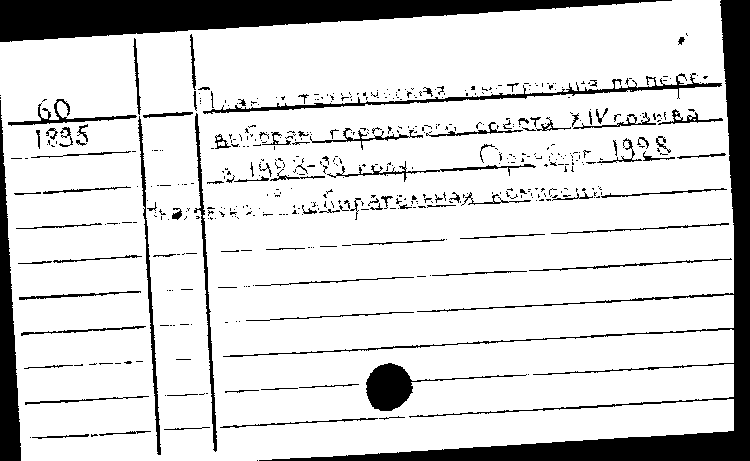 60
1895
План и техническая инструкция по пере-
выборам городского совета XIV созыва
в 1928-29 году. Оренбург. 1928
избирательная комиссия